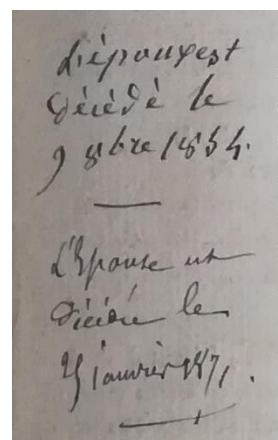 L'épouxest
décédé le
9 8bre 1854.
L'Epouse est
décédée le
25 janvier 1871.